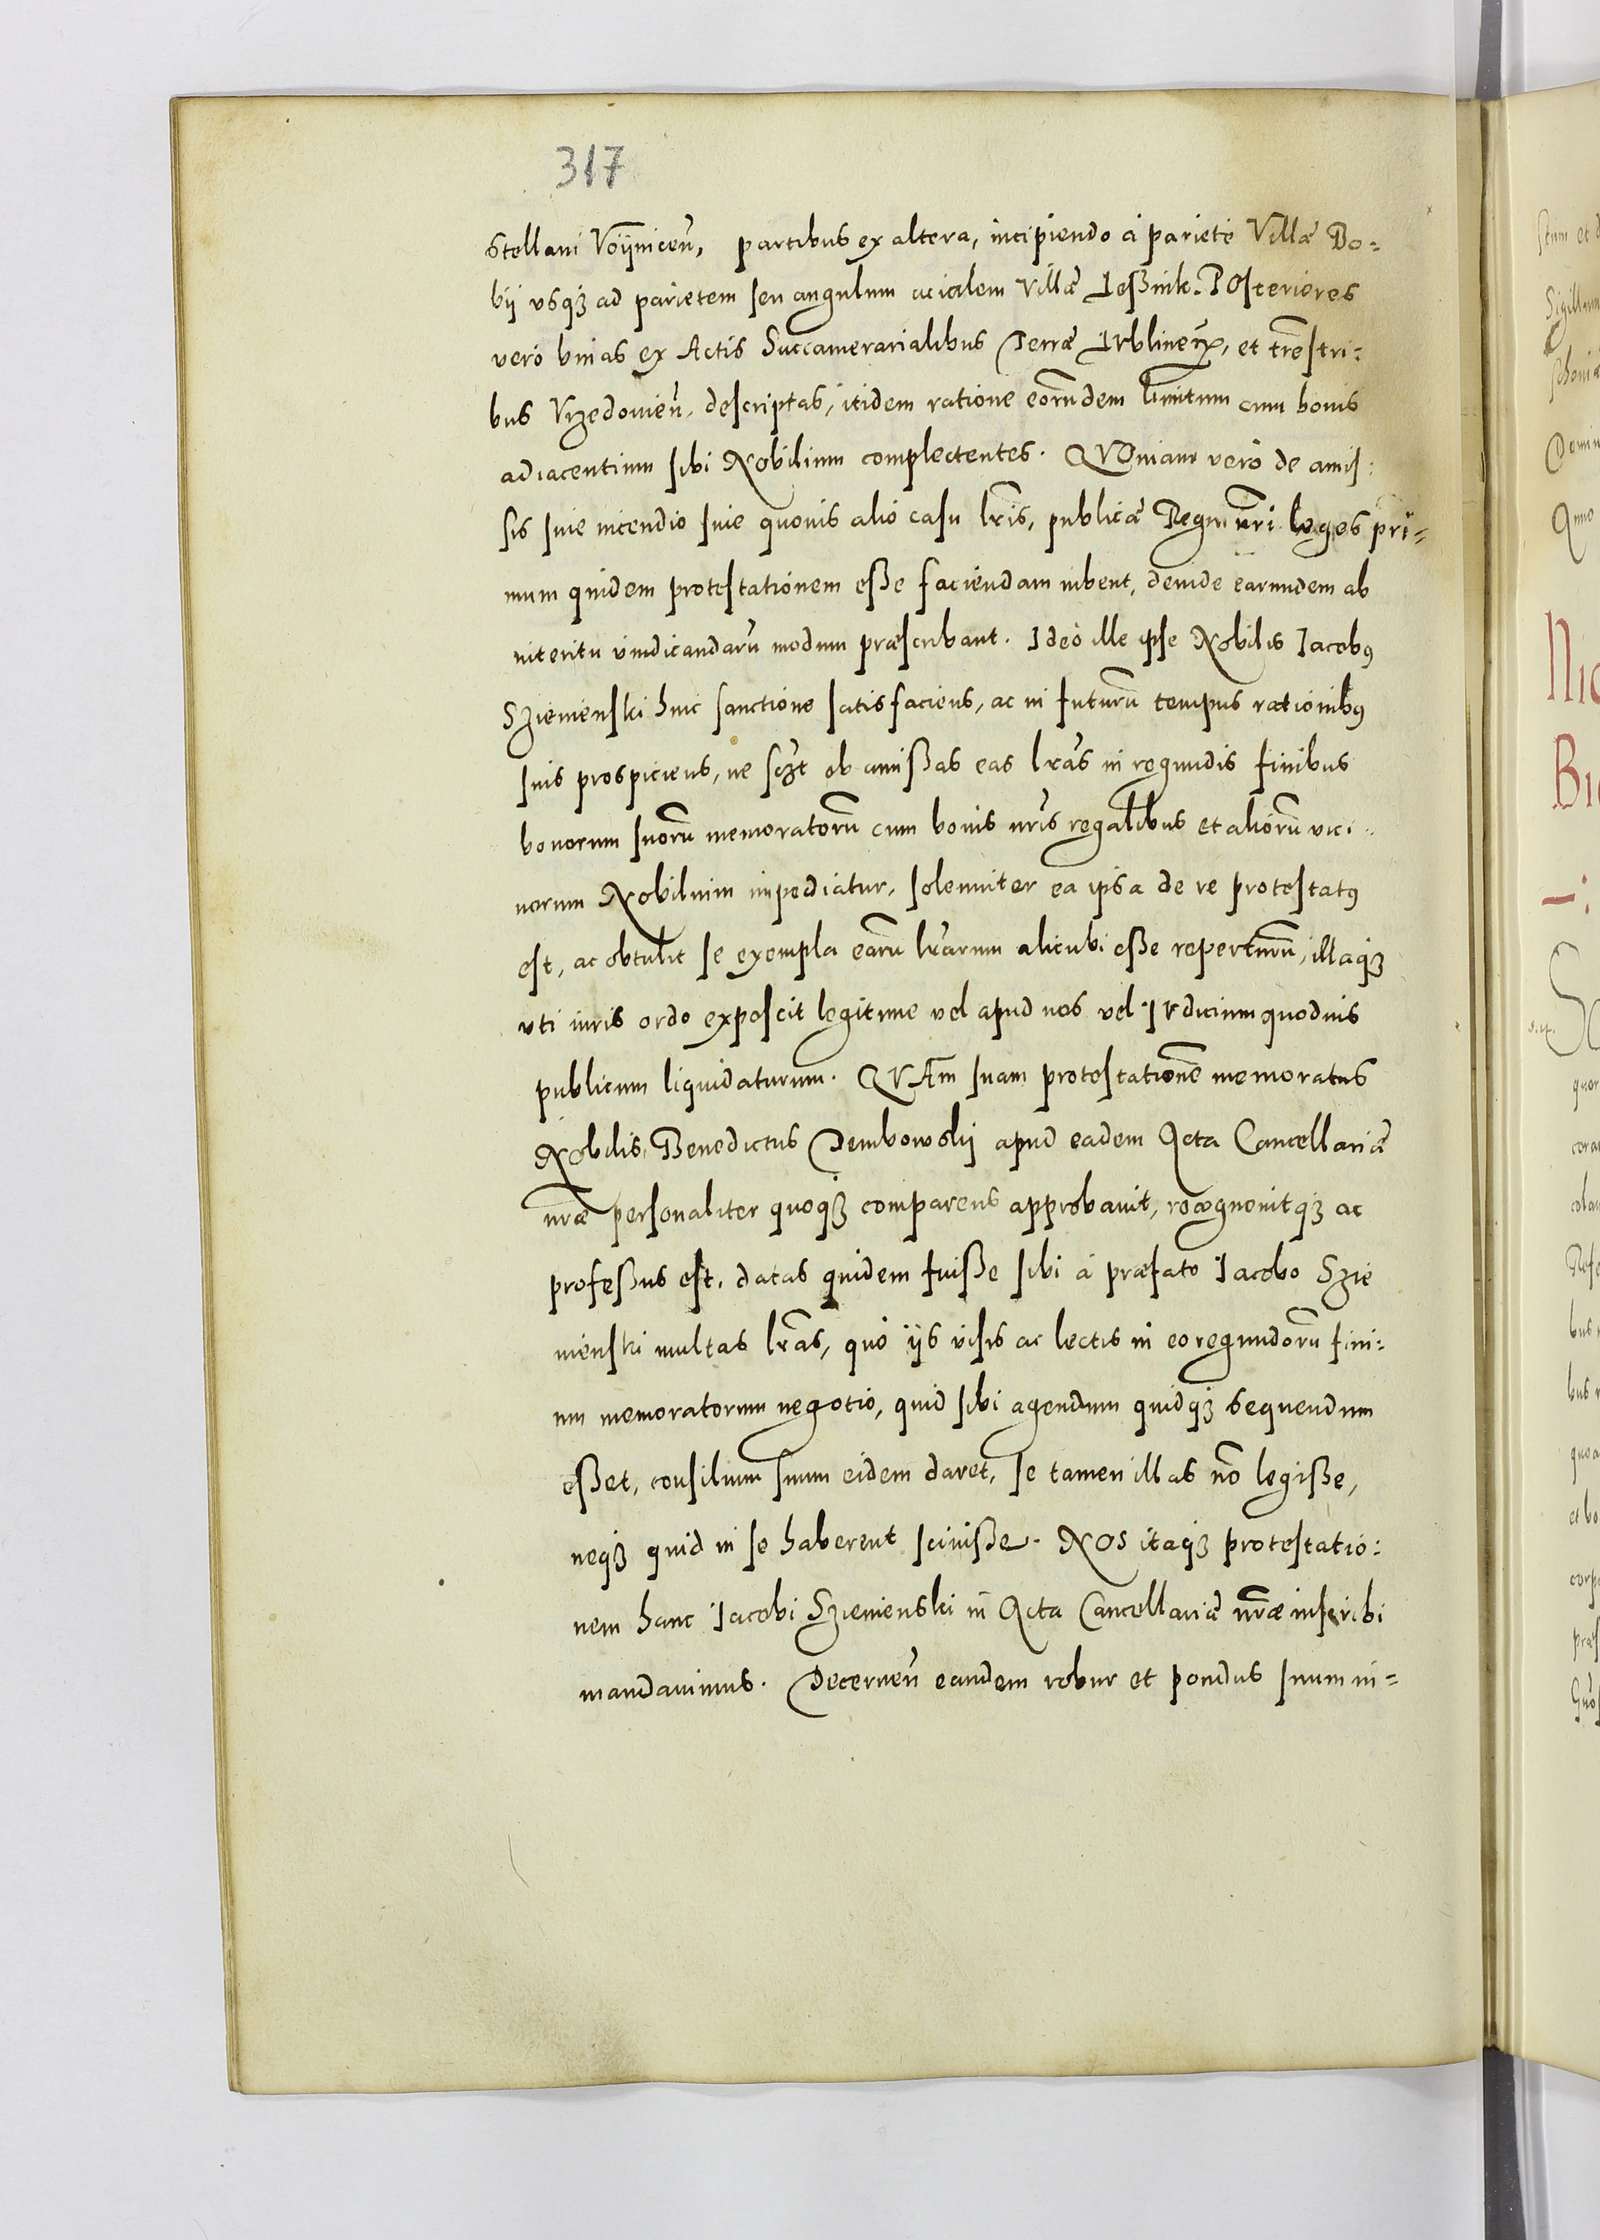 317
stellani Voÿniceñ, partibus ex altera, incipiendo à pariete Villæ Bo=
bij usq3 ad parietem seu angulum acialem Villæ Leßnik. POsteriores
vero binas ex Actis Succamerarialibus Terræ LVblineñ, et trẽstri=
bus Vrzedovieñ, descriptas, itidem ratione eorũdem limitum cum bonis
adiacentium sibi Nobilium complectentes. QVOniam vero de amis=
sis sive incendio sive quovis alio casu lr̃is, publicæ Regni nr̃i leges pri=
mum quidem protestationem eße faciendam iubent, deinde earundem ab
interitu vindicandarũ modum præscribant. Ideo ille ipse Nobilis Iacobꝰ
Szienienski huic sanctione satisfaciens, ac in futurũ tempus rationibꝰ
suis prospiciens, ne sc3t ob amißas eas lr̃as in regundis finibus
bonorum suorũ memoratorũ cum bonis nr̃is regalibus et aliorũ vici=
norum Nobilium impediatur, solenniter ea ipsa de re protestatꝰ
est, ac obtulit se exempla earũ lr̃arum alicubi eße reperturũ, illaq3
uti iuris ordo exposcit legitime vel apud nos vel IVdicium quodvis
publicum liquidaturum. QVAm suam protestationẽ memoratus
Nobilis, Benedictus Dembowskij apud eadem Acta Cancellariæ
nr̃æ personaliter quoq3 comparens approbavit, recognovitq3 ac
profeßus est, datas quidem fuiße sibi à præfato Iacobo Szie
nienski multas lr̃as, quò ijs visis ac lectis in eo regundorũ fini=
um memoratorum negotio, quid sibi agendum quidq3 sequendum
eßet, consilium suum eidem daret, se tamen illas nõ legiße,
neq3 quid in se haberent sciviße. NOS itaq3 protestatio=
nem hanc Iacobi Szienienski in Acta Cancellariæ nr̃æ inscribi
mandavimus. Decerneñ eandem robur et pondus suum in=